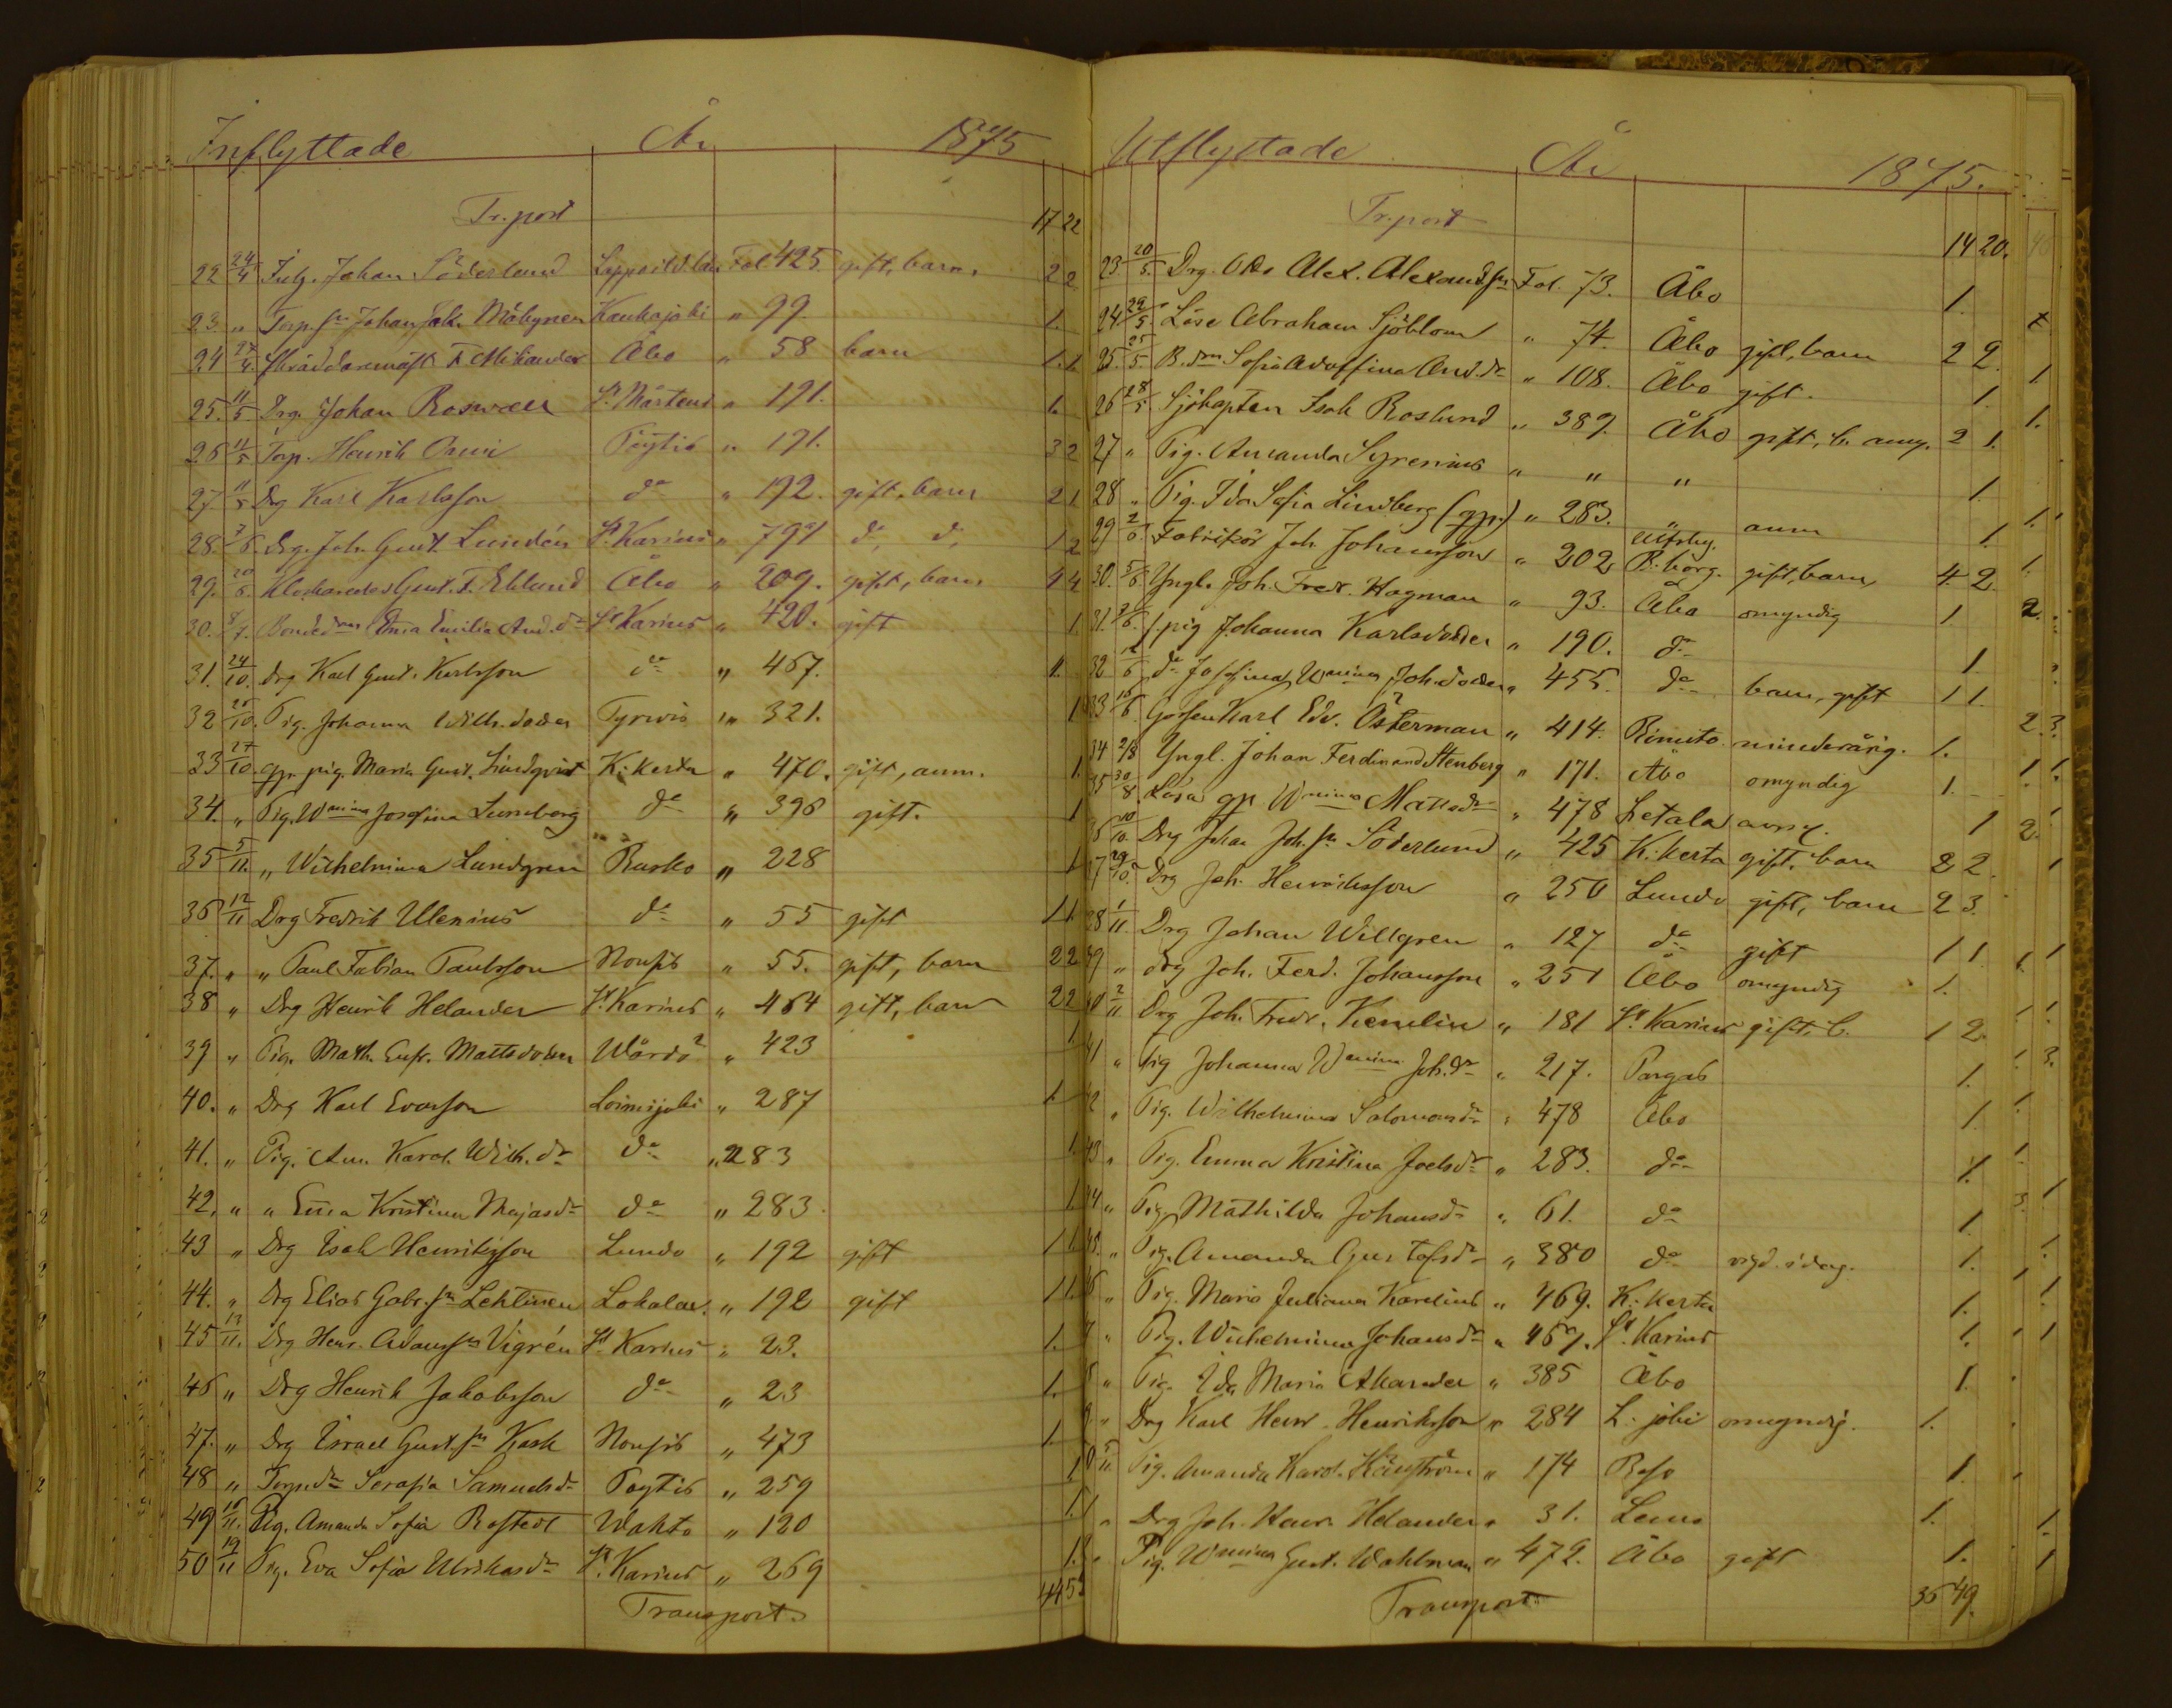 Inflyttade År 1875
Tr.port 17 22
22 24/4 Johan Söderlund Fol 425 gift, barn 2 2
23. „ Torp.sn Johan Jak. Mäkynen Kauhajoki „ 99 1.
24 27/4. F. Mikander Åbo „ 58 barn 1. 1
25. 11/5. Drg. Johan Roswall St Mårtens „ 191. 1.
26 11/5 Torp. Henrik Pöytis „ 191. 3 2
27. 11/5 Drg Karl Karlsson do „ 192. gift, barn 2 1
28. Drg. Joh. Gust. Lundén St Karins „ 791 do, do, 1 2
29. 20/6. Gust. F. Eklund Åbo „ 209. gift, barn 4 4
30. 8/7. Emilia And.dr St Karins „ 420. gift 1.
31. 24/10. Drg Karl Gust. Karlsson do „ 467. 1.
32 25/10. Pig. Johanna Wilh.dotter Tyrvis „ 321. 1
33 27/10. gpr pig. Maria Gust. Lindqvist K:kerta „ 470. gift, anm. 1.
34. „ Pig. Wmina Josefina Lunborg do „ 396 gift. 1
35 5/11. „ Wilhelmina Lundgren Rusko „ 228 1
36 12/11 Drg Fredrik Ulenius do „ 55 gift 1. 1.
37. „ „ Paul Fabian Paulsson Nousis „ 55. gift, barn 2 2
38 „ Drg Henrik Helander St Karins „ 464 gift, barn 2 2
39 „ Pig. Math. Eufr. Mattsdotter Wårdö „ 423 1
40. „ Drg Karl Evasson Loimijoki „ 287 1.
41. „ Pig. Am. Karol. Wilh.dr do „ 283 1.
42. „ „ Emma Kristina Majasdr do „ 283. 1.
43 „ Drg Isak Henriksson Lundo „ 192 gift 1 1
44. „ Drg Elias Gabr.sn Lehtinen Lokalax. „ 192 gift 1 1.
45 13/11. Drg Henr. Adamsson Vigrén St Karins „ 23. 1.
46 „ Drg Henrik Jakobsson do „ 23 1.
47. „ Drg Israel Gust.sn Kask Nousis „ 473 1.
48 „ Torp.dr Serafia Samuelsdr Pöytis „ 259 1
49 16/11. Pig. Amanda Sofia Rostedt Wahto „ 120 1.
50 19/11 Pig. Eva Sofia Ulrikasdr St. Karins „ 269 1.
Transport 44 53
Utflyttade År 1875.
Tr.port 14 20.
23 20/5. Drg. Otto Alex. Alexandssn Fol. 73. Åbo 1.
24. 22/5. Löse Abraham Sjöblom „ 74. Åbo gift, barn 2 2.
25. 25/5. B.dr Sofia Adolfina And.dr „ 108. Åbo gift. 1.
26 28/5 Sjökapten Isak Roslund „ 389. Åbo gift, b. anm. 2 1.
27 „ Pig. Amanda Syrenius „ „ „ 1.
28 „ Pig. Ida Sofia Lindberg (gpr.) „ 283. „ anm 1.
29 2/6. Fabrikör Joh. Johansson „ 202 Ulfsby. B:borg. gift, barn 4 2.
30. 5/6 Yngl. Joh. Fredr. Hagman „ 93. Åbo omyndig 1.
31. pig Johanna Karlsdotter „ 190. do 1.
32 do Josefina Wmina Joh.dotter „ 455. do barn, gift 1 1.
33 Gossen Karl Edv. Österman „ 414. Rimito minderårig. 1.
34 2/8 Yngl. Johan Ferdinand Stenberg „ 171. Åbo omyndig 1.
35 30/8. Lösa gp Wmina Mattsdr „ 478 Letala anm. 1
36 10/10. Drg Johan Joh.sn Söderlund „ 425 K:kerta gift, barn 2 2.
37 29/10. Drg Joh. Henriksson „ 250 Lundo gift, barn 2 3.
38 1/11. Drg Johan Willgren „ 127 do gift 1 1
39 „ Drg Joh. Ferd. Johansson „ 251 Åbo omyndig 1.
40 2/11 Drg Joh. Fredr. Kemelin „ 181 St Karins gift, b. 1 2.
41 „ Pig Johanna Wmina Joh.dr „ 217. Pargas 1.
42 „ Pig. Wilhelmina Salomonsdr „ 478 Åbo 1.
43 „ Pig. Emma Kristina Joelsdr „ 283. do 1.
44 „ Pig. Mathilda Johansdr „ 61. do 1.
45. „ Pig. Amanda Gustafsdr „ 380 do vigd i dag. 1.
46 „ Pig. Maria Juliana Karelius „ 469. K:kerta 1.
7 „ Pig. Wilhelmina Johansdr „ 467. St Karins 1.
8 „ Pig. Ida Maria Akander „ 385 Åbo 1.
9 „ Drg Karl Henr. Henriksson „ 284 L:joki omyndig. 1.
0 5/11 Pig. Amanda Karol. „ 174 Reso 1.
1 „ Drg Joh. Henr. Helander „ 31. Lemo 1.
2 „ Pig. Wmina Gust. Wahlman „ 472. Åbo gift 1.
Transport 36 49.